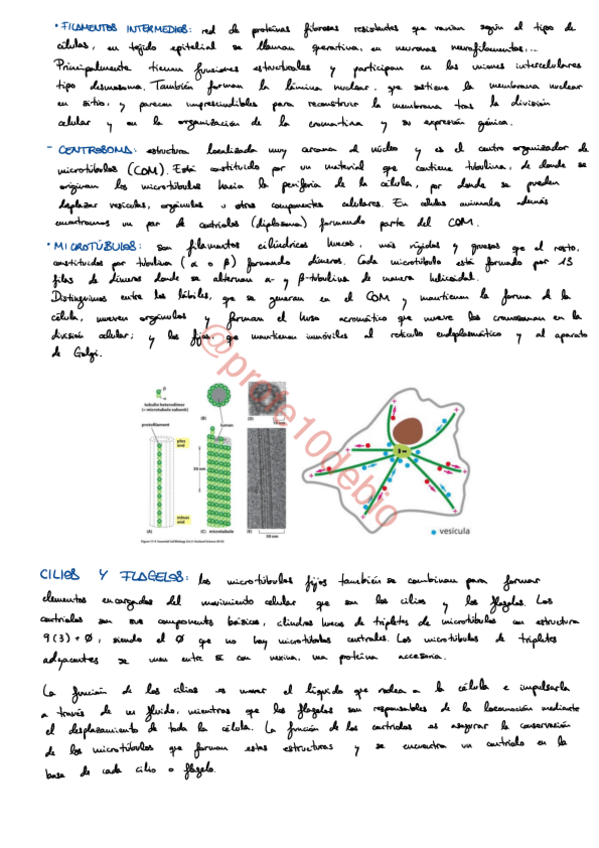 • FILAMENTOS INTERMEDIOS: red de proteínas fibrosas resistentes que varían según el tipo de
células, en tejido epitelial se llaman queratina, en neuronas neurofilamentos...
Principalmente tienen funciones estructurales y participan en las uniones intercelulares
tipo desmosoma. También forman la lámina nuclear, que sostiene la membrana nuclear
en sitio, y parecen imprescindibles para reconstruir la membrana tras la división
celular y en la organización de la cromatina y su expresión génica.
- CENTROSOMA: estructura localizada muy cercana al núcleo y es el centro organizador de
microtúbulos (COM). Está constituido por un material que contiene tubulina, de donde se
originan los microtúbulos hacia la periferia de la célula, por donde se pueden
desplazar vesículas, orgánulos u otros componentes celulares. En células animales además
encontramos un par de centriolos (diplosoma) formando parte del COM.
• MICROTÚBULOS: son filamentos cilíndricos huecos, más rígidos y gruesos que el resto,
constituidos por tubulina (α o β) formando dímeros. Cada microtúbulo está formado por 13
filas de dímeros donde se alternan α- y β-tubulina de manera helicoidal.
Distinguimos entre los lábiles, que se generan en el COM y mantienen la forma de la
célula, mueven orgánulos y forman el huso acromático que mueve los cromosomas en la
división celular; y los fijos, que mantienen inmóviles al retículo endoplasmático y al aparato
de Golgi.
@profe10debio
tubulin heterodimer
(= microtubule subunit)
protofilament
plus
end
minus
end
(A)
(B)
lumen
50 nm
(C) microtubule
(D)
10 nm
(E)
50 nm
vesícula
CILIOS Y FLAGELOS: los microtúbulos fijos también se combinan para formar
elementos encargados del movimiento celular que son los cilios y los flagelos. Los
centriolos son sus componentes básicos, cilindros huecos de tripletes de microtúbulos con estructura
9(3)+Ø, siendo el Ø que no hay microtúbulos centrales. Los microtúbulos de tripletes
adyacentes se unen entre sí con nexina, una proteína accesoria.
La función de los cilios es mover el líquido que rodea a la célula e impulsarla
a través de un fluido, mientras que los flagelos son responsables de la locomoción mediante
el desplazamiento de toda la célula. La función de los centriolos es asegurar la conservación
de los microtúbulos que forman estas estructuras y se encuentra un centriolo en la
base de cada cilio o flagelo.